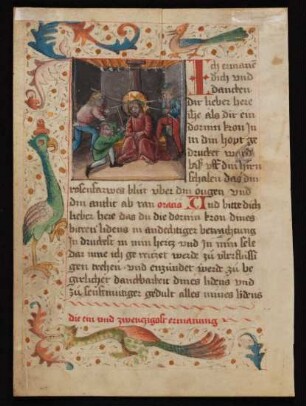 Ich ermane
dich vnd
dancken
dir lieber here
ihs als dir ein
dornin kron In
in din hopt ge
drucket ward
biß vff din hirn
schalen das din
rosenfarwes blut vber din ougen vnd
din antlit ab ran orans Und bitt dich
lieber here das du die dornin kron dines
bittren lidens in andechtiger betrachtung
In druckest in min hertz vnd In min sele
dar mitte ich ge reitzet werde zu vberflussi
gen trehen vnd enzündet werde zu be
girlicher danckbarkeit dines lidens vnd
zu senftmütiger gedult alles mines lidens
die ein vnd zwenzigost ermanung